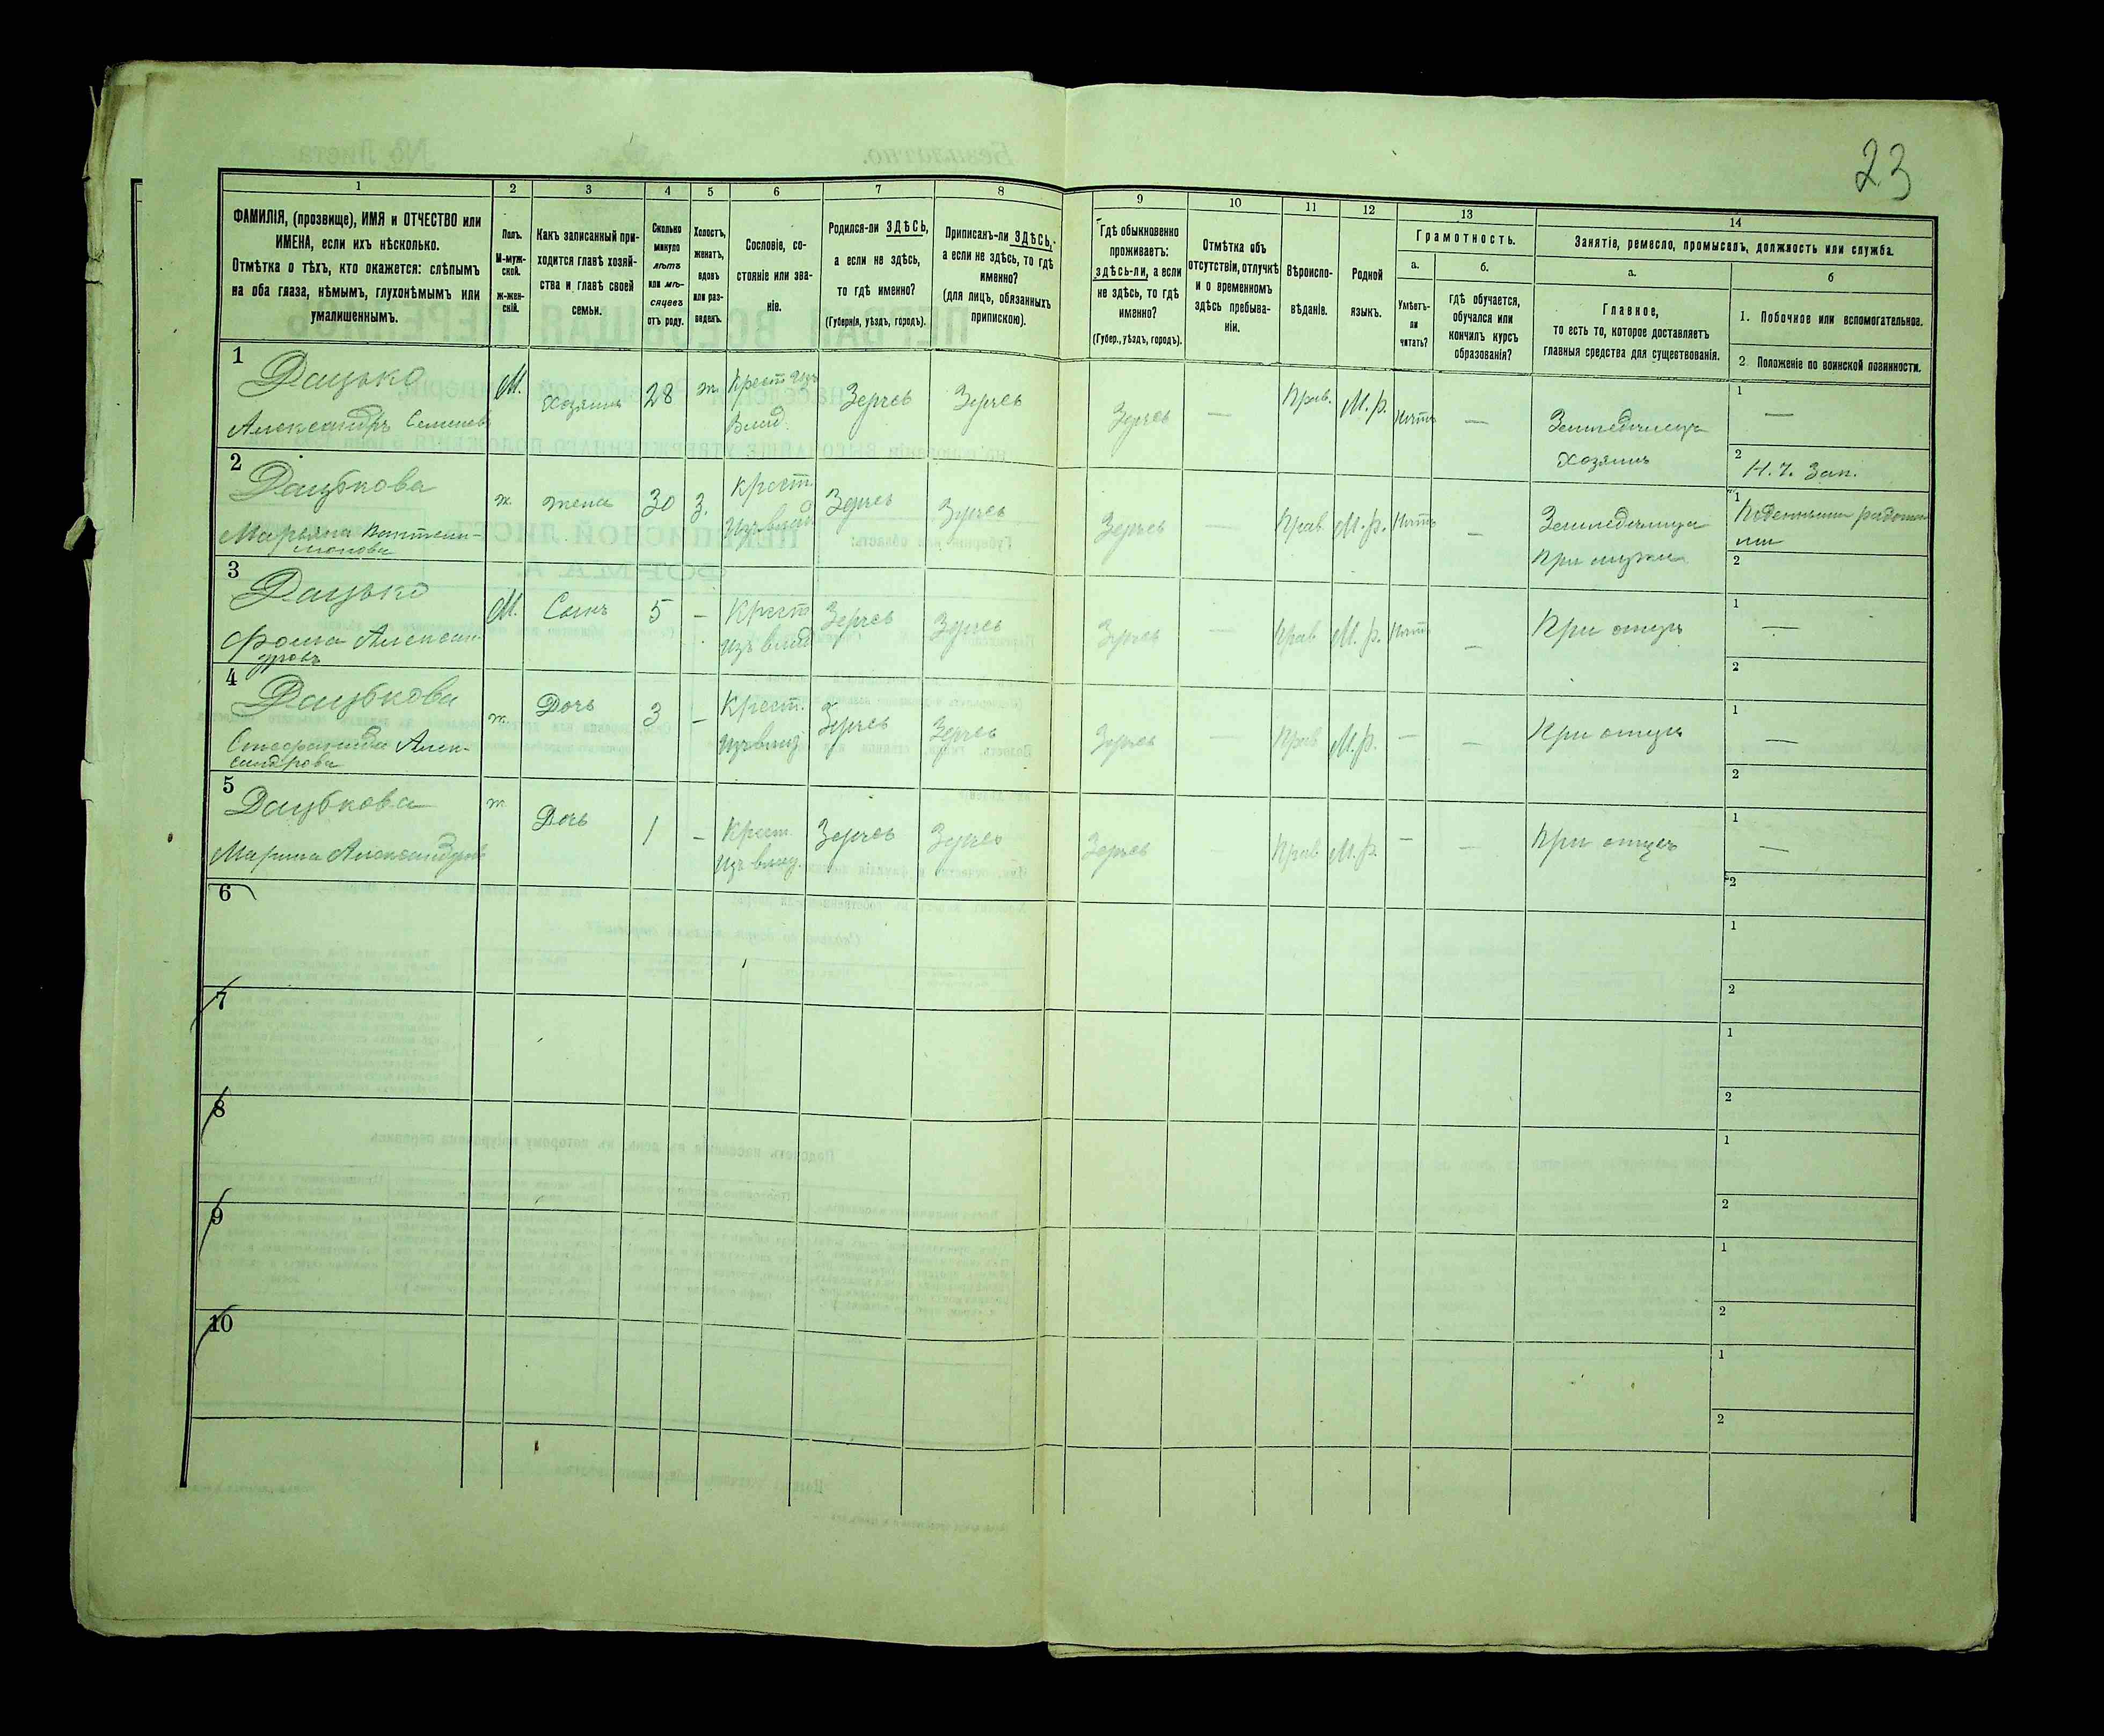 23
1
2
3
4
5
6
7
8
9
10
11
12
13
14
ФАМИЛІЯ, (прозвище), ИМЯ и ОТЧЕСТВО или
ИМЕНА, если ихъ нѣсколько.
Отмѣтка о тѣхъ, кто окажется: слѣпымъ
на оба глаза, нѣмымъ, глухонѣмымъ или
умалишеннымъ.
Полъ.
М-муж-
ской.
ж-жен-
скій.
Какъ записанный при-
ходится главѣ хозяй-
ства и главѣ своей
семьи.
Сколько
минуло
лѣтъ
или мѣ-
сяцевъ
отъ роду.
Холостъ,
женатъ,
вдовъ
или раз-
веденъ.
Сословіе, со-
стояніе или зва-
ніе.
Родился-ли ЗДѢСЬ,
а если не здѣсь,
то гдѣ именно?
(Губернія, уѣздъ, городъ).
Приписанъ-ли ЗДѢСЬ,
а если не здѣсь, то гдѣ
именно?
(для лицъ, обязанныхъ
припискою).
Гдѣ обыкновенно
проживаетъ:
здѣсь-ли, а если
не здѣсь, то гдѣ
именно?
(Губер., уѣздъ, городъ).
Отмѣтка объ
отсутствіи, отлучкѣ
и о временномъ
здѣсь пребыва-
ніи.
Вѣроиспо-
вѣданіе.
Родной
языкъ.
Грамотность.
а.
Умѣетъ-
ли
читать?
б.
гдѣ обучается,
обучался или
кончилъ курсъ
образованія?
Занятіе, ремесло, промыселъ, должность или служба.
а.
Главное,
то есть то, которое доставляетъ
главныя средства для существованія.
б
1. Побочное или вспомогательное.
2. Положеніе по воинской повинности.
1
Дацько
Александръ Семеновъ
М.
Хозяинъ
28
ж.
Крест. изъ
Влад.
Здѣсь
Здѣсь
Здѣсь
—
Прав.
М. р.
Нѣтъ
—
Земледѣлецъ
Хозяинъ
1
—
2
Н. ч. Зап.
2
Дацькова
Марьяна
ж.
жена
30
З.
Крест.
изъ влад.
Здѣсь
Здѣсь
Здѣсь
—
Прав
М. р.
Нѣтъ
—
Земледѣлица
При мужѣ
1
2
3
Дацько
Фома Алексан-
дровъ
М.
Сынъ
5
—
Крест
изъ влад
Здѣсь
Здѣсь
Здѣсь
—
Прав
М. р.
Нѣтъ
—
При отцѣ
1
—
2
4
Дацькова
Стефанида Алек-
сандрова
ж.
Дочь
3
—
Крест.
изъ влад.
Здѣсь
Здѣсь
Здѣсь
—
Прав
М. р.
—
—
При отцѣ
1
—
2
5
Дацькова
Марина Александров
ж.
Дочь
1
—
Крест.
изъ влад.
Здѣсь
Здѣсь
Здѣсь
Прав
М. р.
—
—
При отцѣ
1
—
2
6
1
2
7
1
2
8
1
2
9
1
2
10
1
2